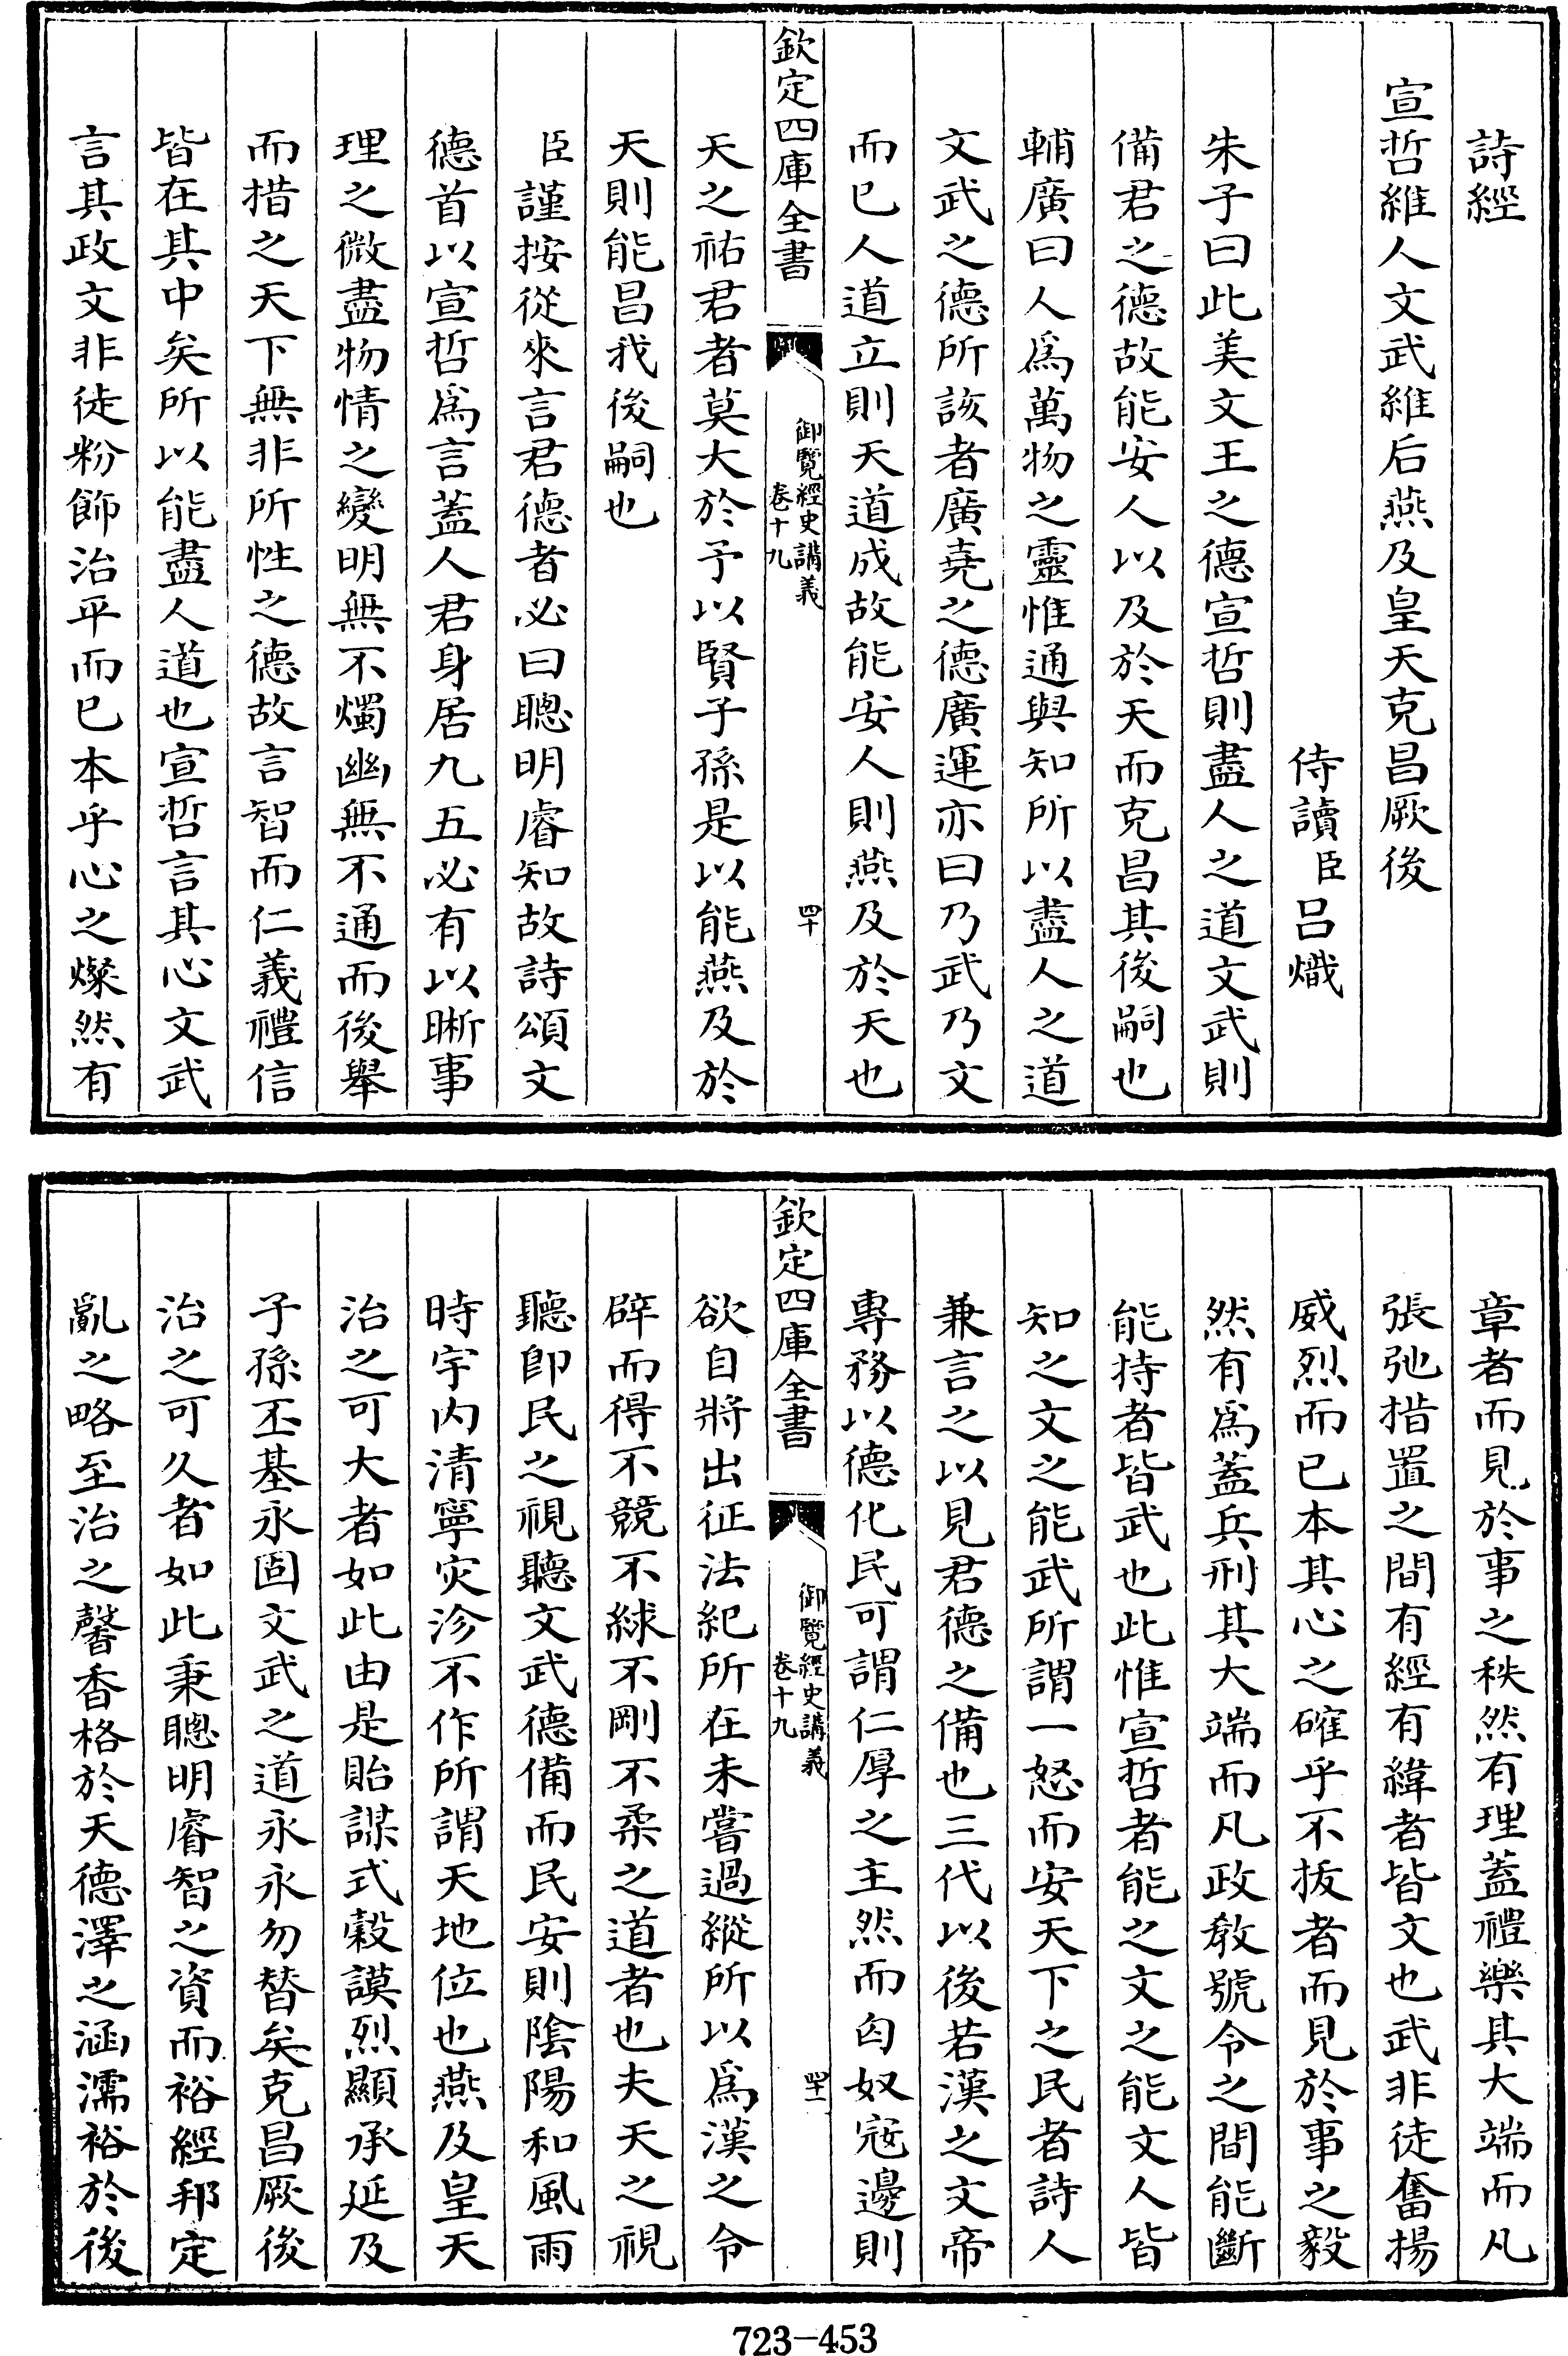 詩經
宣哲維人文武維后燕及皇天克昌厥後
侍讀臣呂熾
朱子曰此美文王之德宣哲則盡人之道文武則
備君之德故能安人以及於天而克昌其後嗣也
輔廣曰人爲萬物之靈惟通與知所以盡人之道
文武之德所該者廣堯之德廣運亦曰乃武乃文
而已人道立則天道成故能安人則燕及於天也
欽定四庫全書
御覽經史講義
卷十九
四十
天之祐君者莫大於予以賢子孫是以能燕及於
天則能昌我後嗣也
臣謹按從來言君德者必曰聰明睿知故詩頌文
德首以宣哲爲言蓋人君身居九五必有以晰事
理之微盡物情之變明無不燭幽無不通而後舉
而措之天下無非所性之德故言智而仁義禮信
皆在其中矣所以能盡人道也宣哲言其心文武
言其政文非徒粉飾治平而已本乎心之燦然有
章者而見於事之秩然有理蓋禮樂其大端而凡
張弛措置之間有經有緯者皆文也武非徒奮揚
威烈而已本其心之確乎不拔者而見於事之毅
然有爲蓋兵刑其大端而凡政教號令之間能斷
能持者皆武也此惟宣哲者能之文之能文人皆
知之文之能武所謂一怒而安天下之民者詩人
兼言之以見君德之備也三代以後若漢之文帝
專務以德化民可謂仁厚之主然而匈奴寇邊則
欽定四庫全書
御覽經史講義
卷十九
四十一
欲自將出征法紀所在未嘗過縱所以爲漢之令
辟而得不競不絿不剛不柔之道者也夫天之視
聽卽民之視聽文武德備而民安則陰陽和風雨
時宇内清寧灾沴不作所謂天地位也燕及皇天
治之可大者如此由是貽謀式穀謨烈顯承延及
子孫丕基永固文武之道永永勿替矣克昌厥後
治之可久者如此秉聰明睿智之資而裕經邦定
亂之略至治之馨香格於天德澤之涵濡裕於後
723-453